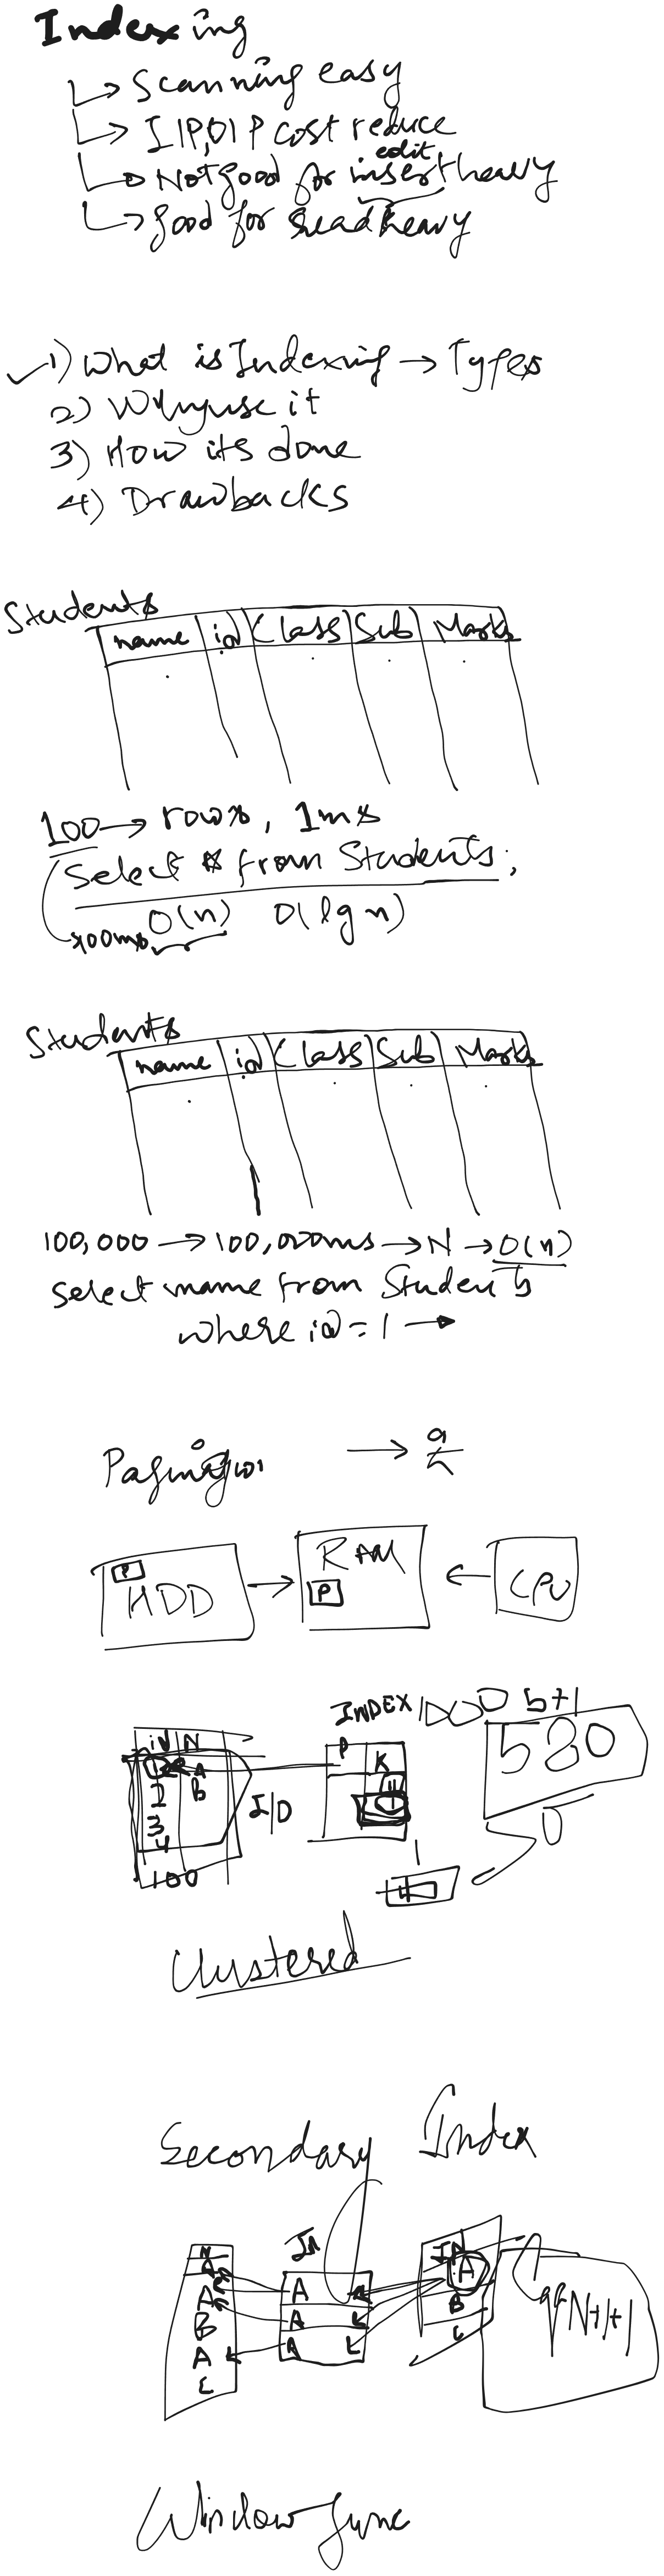 Indexing
↳ Scanning easy
↳ I/P, O/P cost reduce
edit
↳ Not good for insert heavy
↳ good for read heavy
✓ 1) What is Indexing → Types
2) Why use it
3) How its done
4) Drawbacks
Students
name id Class Sub Marks
100 → rows, 1ms
Select * from Students;
100ms O(n) O(lg n)
Students
name id Class Sub Marks
100,000 → 100,000ms → N → O(n)
Select name from Students
where id = 1 →
→
P HDD → RAM P ← CPU
INDEX 1000 5+1
id N P K 580
1 A
2 B I/O
3
4
100 1 50
Clustered
Secondary Index
N In IN
A A A
A A B
B A
A
C
N+1+1
Window func